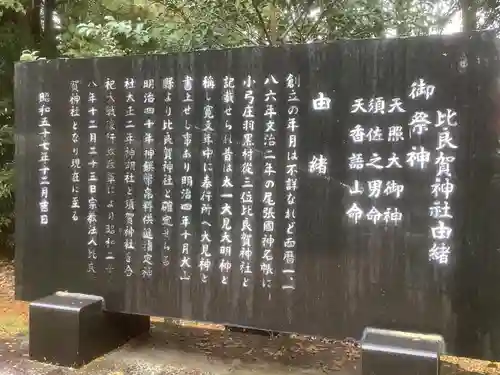 比良賀神社由緒
御祭神
天照大御神
須佐之男命
天香語山命
由緒
創立の年月は不詳なれど西暦一一
八六年文治二年の尾張國神名帳に
小弓庄羽黒村従三位比良賀神社と
記載せられ昔は太一大見大明神と
称し寛文年中に奉行所へ大見神と
書上せし事あり明治四年十月犬山
縣より比良賀神社と確定せらる
明治四十年神饌幣帛料供進指定神
社大正二年神明社と須賀神社を合
祀大戦後行政改革により昭和二十
八年十二月二十三日宗教法人比良
賀神社となり現在に至る
昭和五十七年十二月吉日